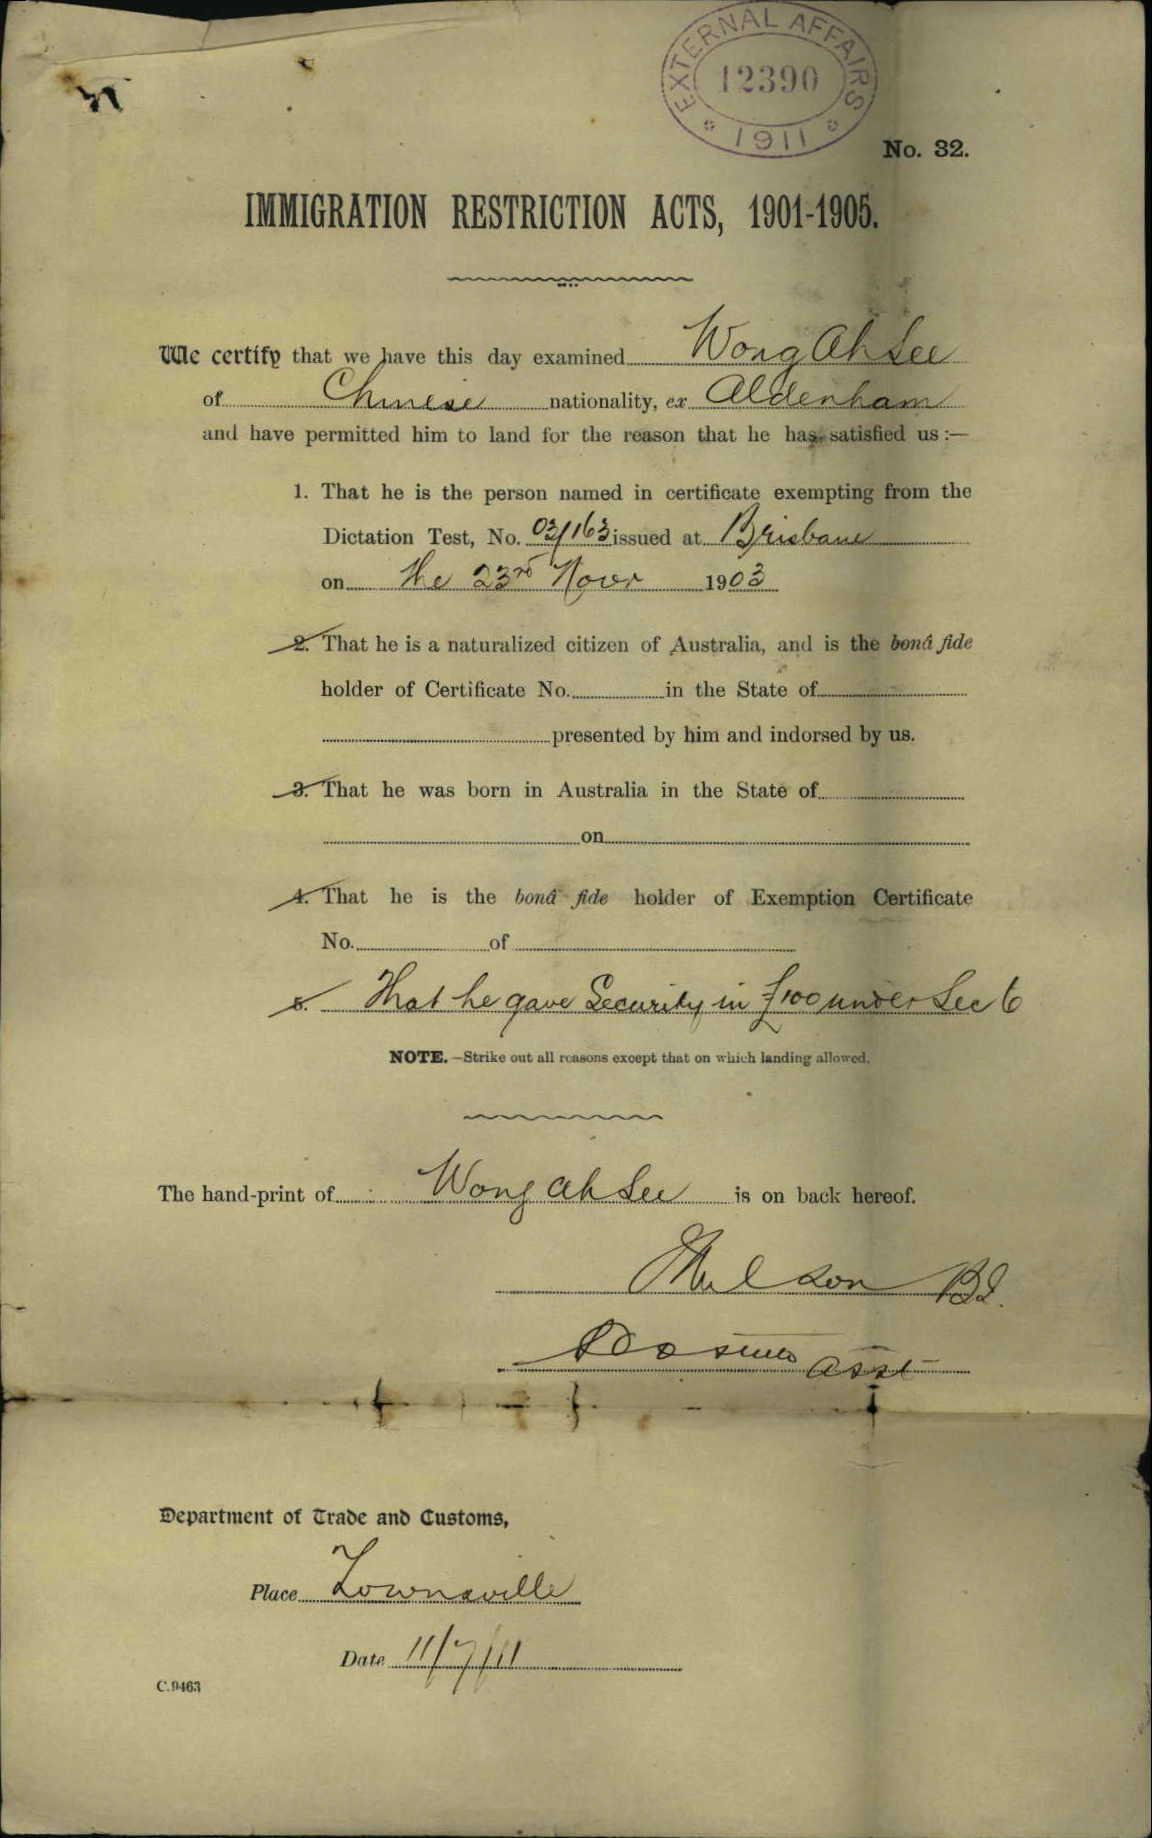 EXTERNAL AFFAIRS
12390
1911
No. 32.
IMMIGRATION RESTRICTION ACTS, 1901-1905.
We certify that we have this day examined Wong Ah See
of Chinese nationality, ex Aldenham
and have permitted him to land for the reason that he has satisfied us :—
1. That he is the person named in certificate exempting from the
Dictation Test, No. 03/163 issued at Brisbane
on the 23rd Novr 1903
2. That he is a naturalized citizen of Australia, and is the bonâ fide
holder of Certificate No. in the State of
presented by him and indorsed by us.
3. That he was born in Australia in the State of
on
4. That he is the bonâ fide holder of Exemption Certificate
No. of
5. That he gave Security in £100 under Sec 6
NOTE.—Strike out all reasons except that on which landing allowed.
The hand-print of Wong Ah See is on back hereof.
asst
Department of Trade and Customs,
Place Townsville
Date 11/7/11
C.9463